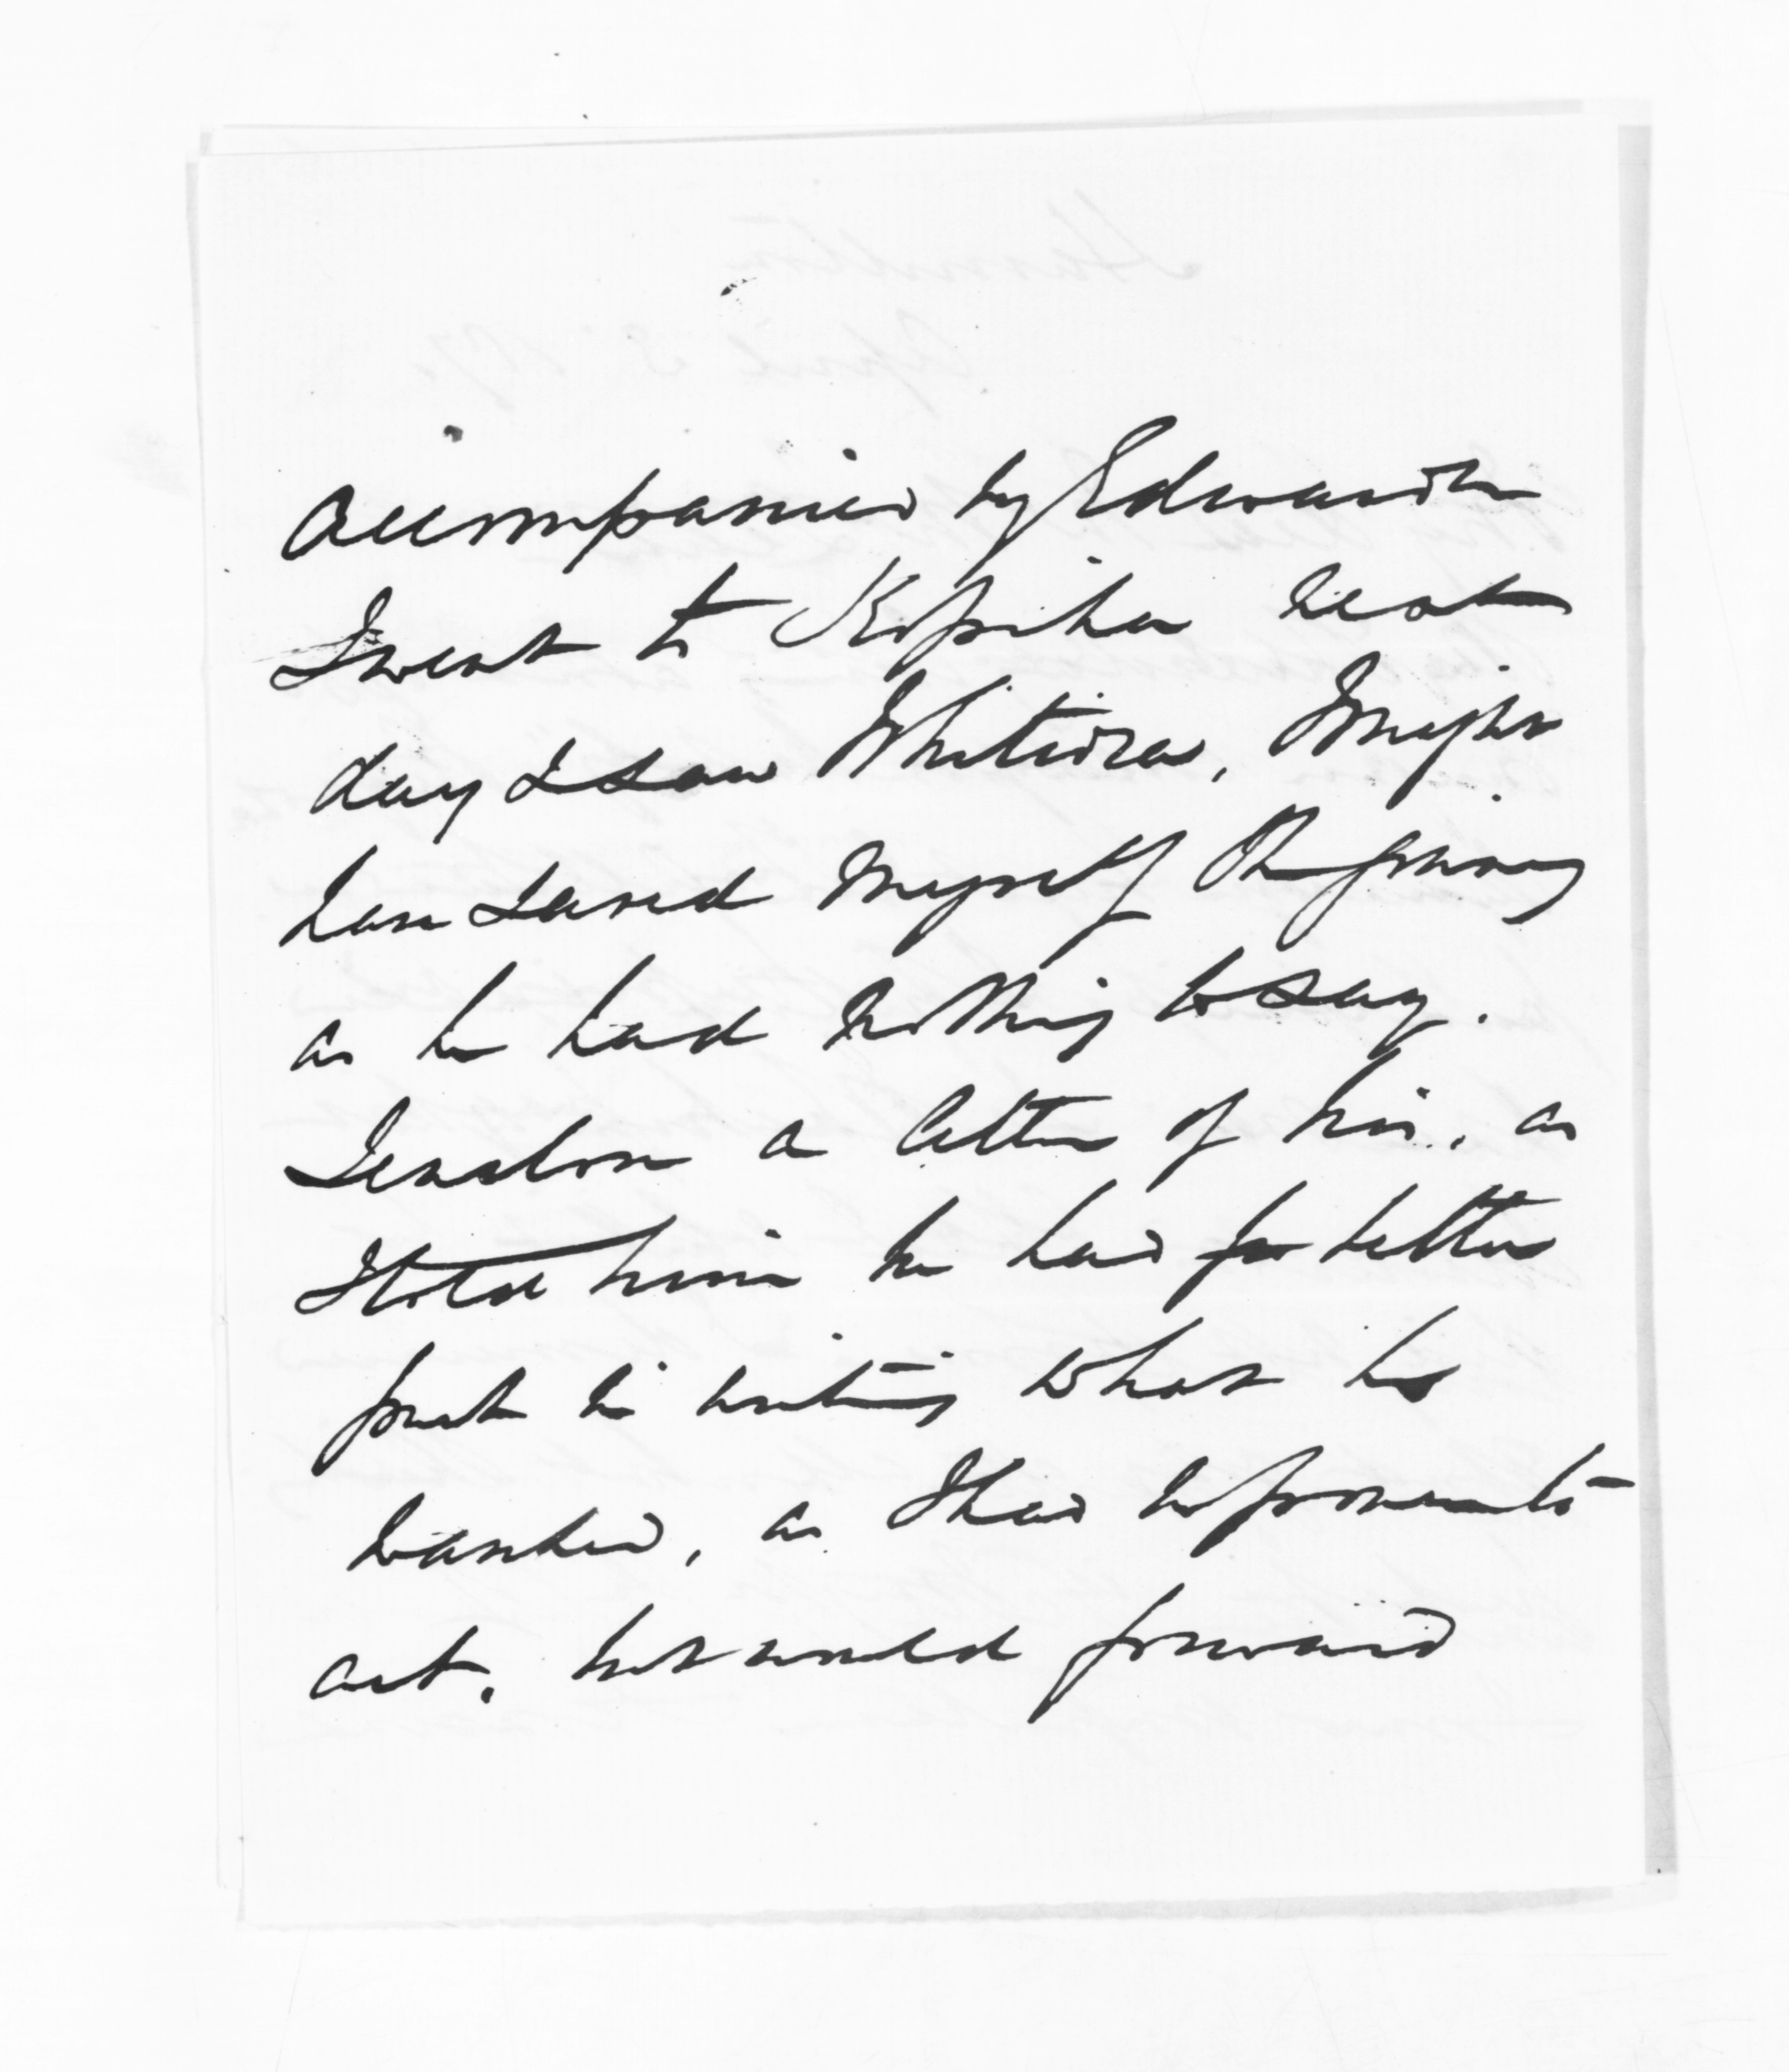 accompanied by Edwards
I went to Kopiha next
day I saw Whitiora, I might
have saved myself the journey
as he had nothing to say.
I enclose a letter of his. as
I told him he had far better
put in writing what he
wanted, as I had no power to
act. but would forward